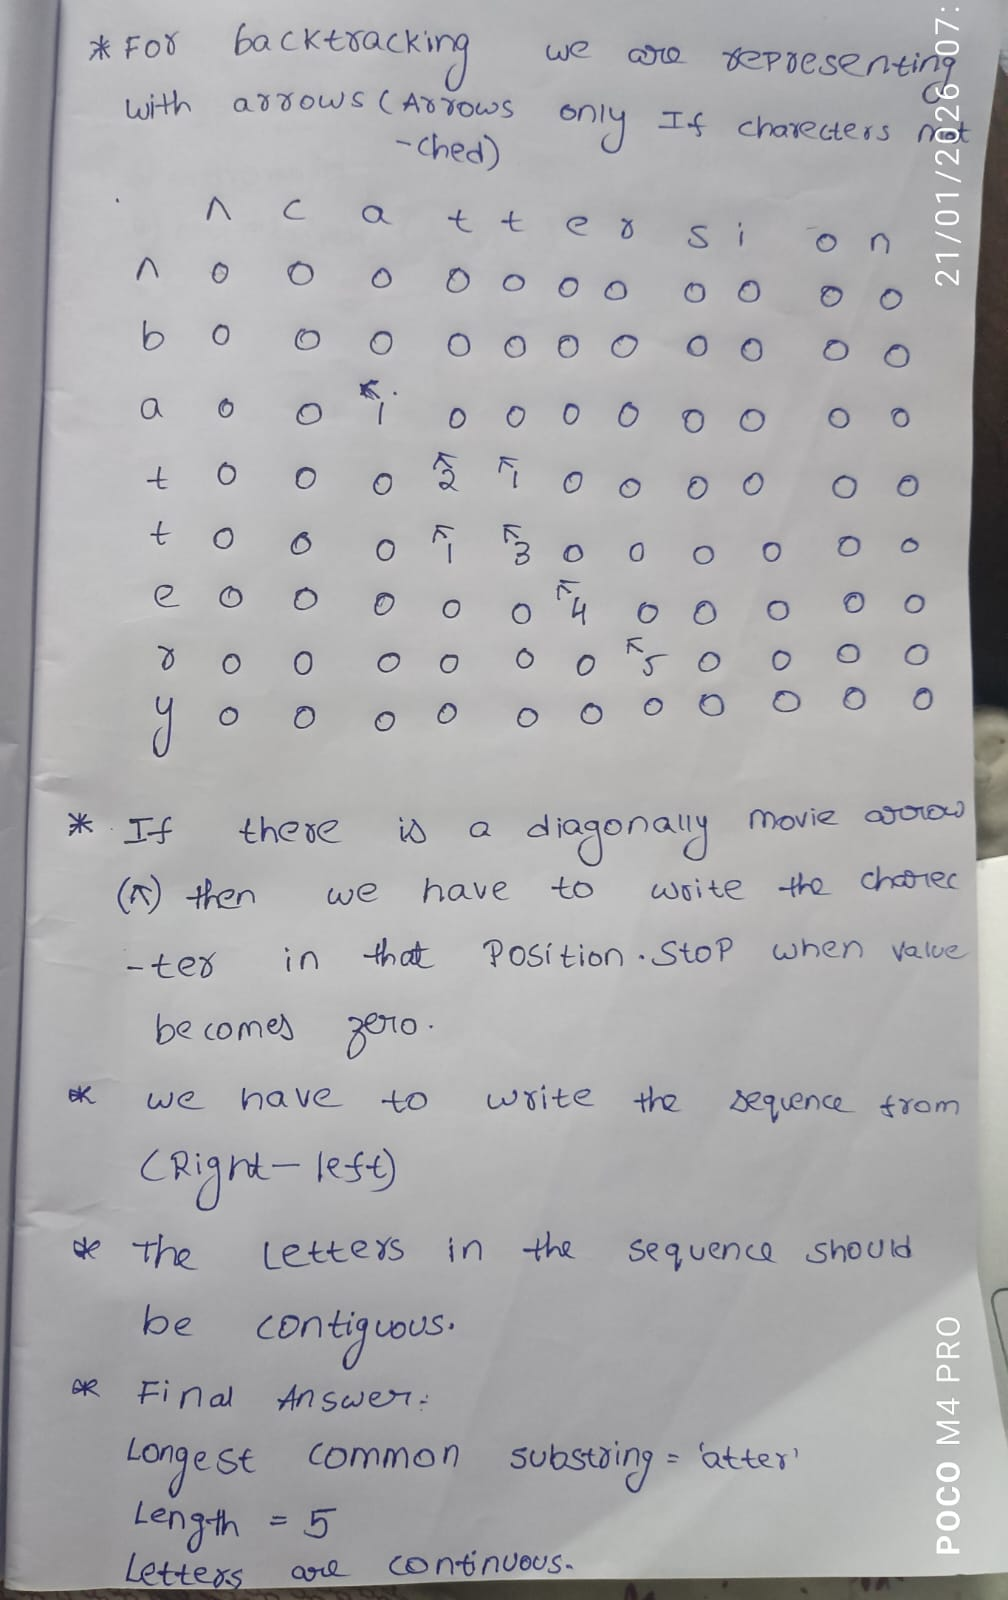 * For backtracking we are representing
with arrows (Arrows only If charecters mat
-ched)
^ c a t t e r s i o n
^ 0 0 0 0 0 0 0 0 0 0 0
b 0 0 0 0 0 0 0 0 0 0 0
a 0 0 ↖1 0 0 0 0 0 0 0 0
t 0 0 0 ↖2 ↖1 0 0 0 0 0 0
t 0 0 0 ↖1 ↖3 0 0 0 0 0 0
e 0 0 0 0 0 ↖4 0 0 0 0 0
r 0 0 0 0 0 0 ↖5 0 0 0 0
y 0 0 0 0 0 0 0 0 0 0 0
* If there is a diagonally movie arrow
(↖) then we have to write the charec
-ter in that Position. Stop when value
becomes zero.
* we have to write the sequence from
(Right - left)
* The Letters in the sequence should
be contiguous.
* Final Answer:
Longest common substring = 'atter'
Length = 5
Letters are continuous.
21/01/2026 07:
POCO M4 PRO